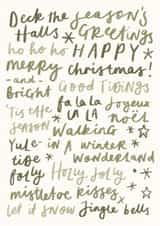 Deck the Season's
Halls Greetings
ho ho ho HAPPY
merry christmas!
-and-
Bright Good Tidings
'Tis the fa la la Joyeux
SEASON LA LA noël
Walking
Yule- in a winter
tide wonderland
folly Holly Jolly
mistletoe kisses
let it snow Jingle bells